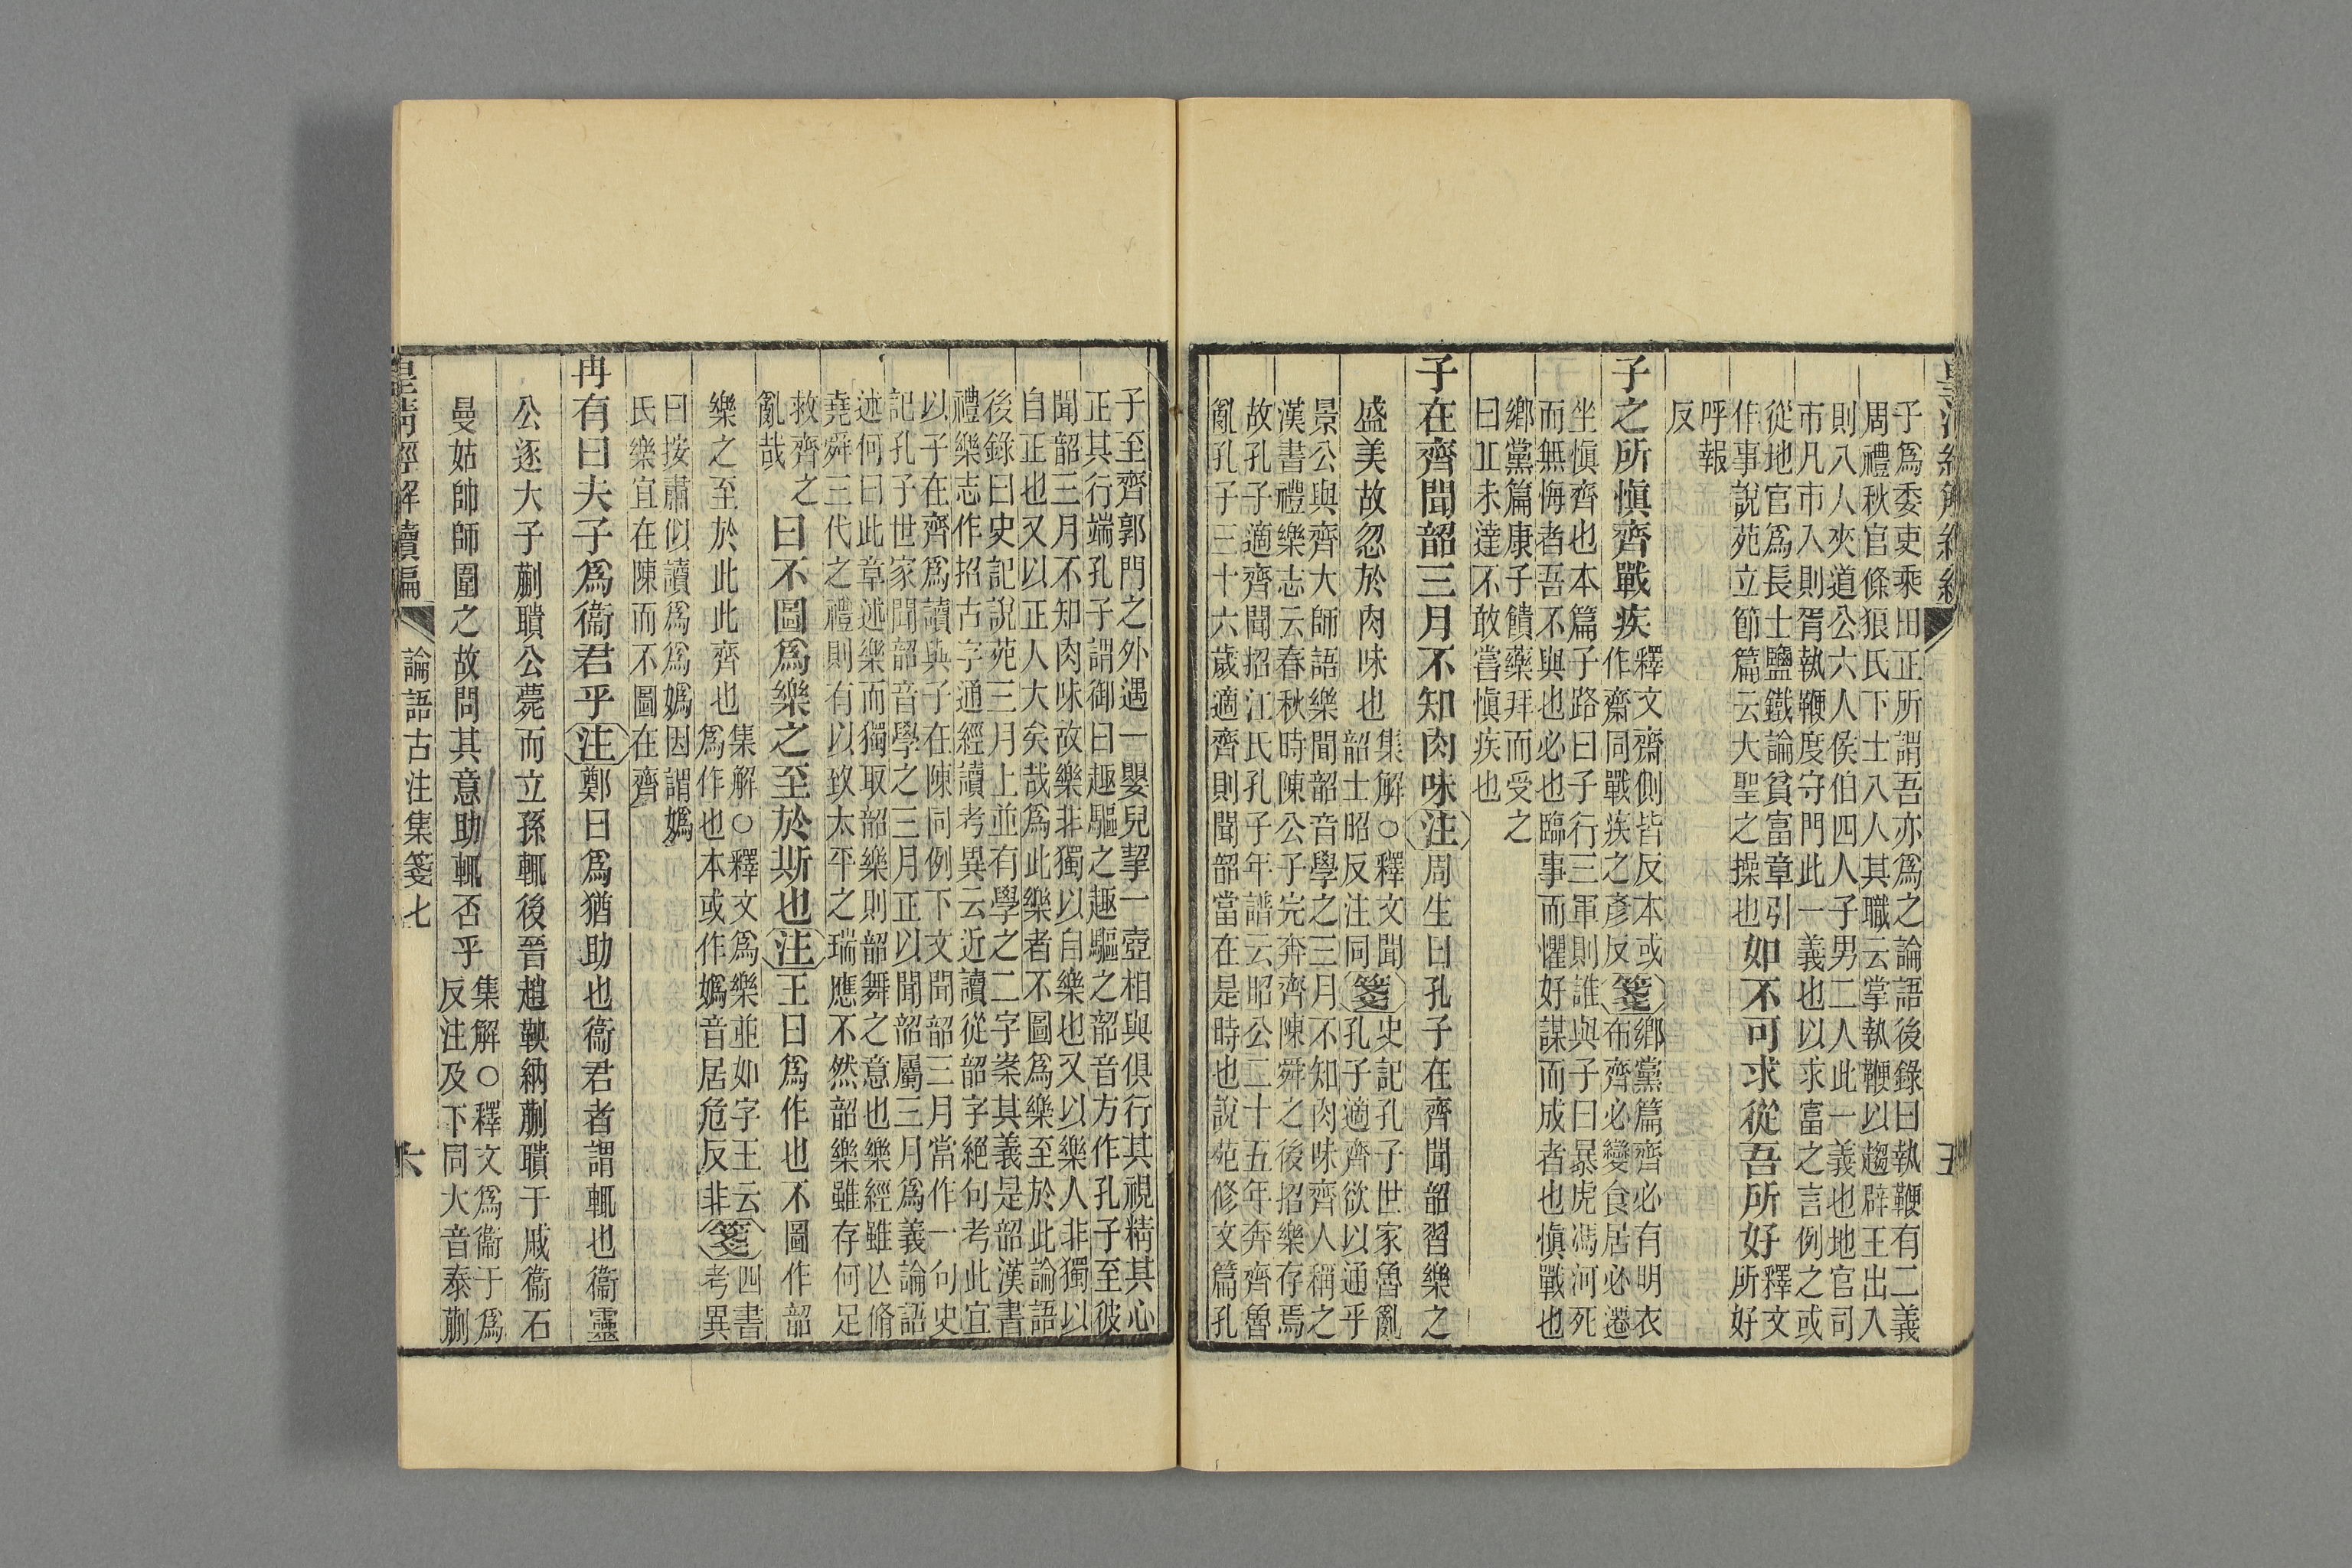 皇清經解續編
五
子爲委吏乘田正所謂吾亦爲之論語後錄曰執鞭有二義
周禮秋官條狼氏下士八人其職云掌執鞭以趨辟王出入
則八人夾道公六人侯伯四人子男二人此一義也地官司
市凡市入則胥執鞭度守門此一義也以求富之言例之或
從地官爲長士鹽鐵論貧富章引
作事說苑立節篇云大聖之操也
如不可求從吾所好
釋文
所好
呼報
反
子之所愼齊戰疾
釋文齋側皆反本或
作齋同戰疾之彥反
箋
鄉黨篇齊必有明衣
布齊必變食居必遷
坐愼齊也本篇子路曰子行三軍則誰與子曰暴虎馮河死
而無悔者吾不與也必也臨事而懼好謀而成者也愼戰也
鄉黨篇康子饋藥拜而受之
曰丘未達不敢嘗愼疾也
子在齊聞韶三月不知肉味注周生曰孔子在齊聞韶習樂之
盛美故忽於肉味也
集解○釋文聞
韶士昭反注同
箋
史記孔子世家魯亂
孔子適齊欲以通乎
景公與齊大師語樂聞韶音學之三月不知肉味齊人稱之
漢書禮樂志云春秋時陳公子完奔齊陳舜之後招樂存焉
故孔子適齊聞招江氏孔子年譜云昭公二十五年奔齊魯
亂孔子三十六歲適齊則聞韶當在是時也說苑修文篇孔
子至齊郭門之外遇一嬰兒挈一壺相與俱行其視精其心
正其行端孔子謂御曰趣驅之趣驅之韶音方作孔子至彼
聞韶三月不知肉味故樂非獨以自樂也又以樂人非獨以
自正也又以正人大矣哉爲此樂者不圖爲樂至於此論語
後錄曰史記說苑三月上並有學之二字案其義是韶漢書
禮樂志作招古字通經讀考異云近讀從韶字絕句考此宜
以子在齊爲讀與子在陳同例下文聞韶三月當作一句史
記孔子世家聞韶音學之三月正以聞韶屬三月爲義論語
述何曰此章述樂而獨取韶樂則韶舞之意也樂經雖亾脩
堯舜三代之禮則有以致太平之瑞應不然韶樂雖存何足
救齊之
亂哉
曰不圖爲樂之至於斯也注王曰爲作也不圖作韶
樂之至於此此齊也
集解○釋文爲樂並如字王云
爲作也本或作嬀音居危反非
箋
四書
考異
曰按肅似讀爲爲嬀因謂嬀
氏樂宜在陳而不圖在齊
冉有曰夫子爲衞君乎注鄭曰爲猶助也衞君者謂輒也衞靈
公逐大子蒯聵公薨而立孫輒後晉趙鞅納蒯聵于戚衞石
曼姑帥師圍之故問其意助輒否乎
集解○釋文爲衞于爲
反注及下同大音泰蒯
皇淸經解續編
論語古注集箋七
六